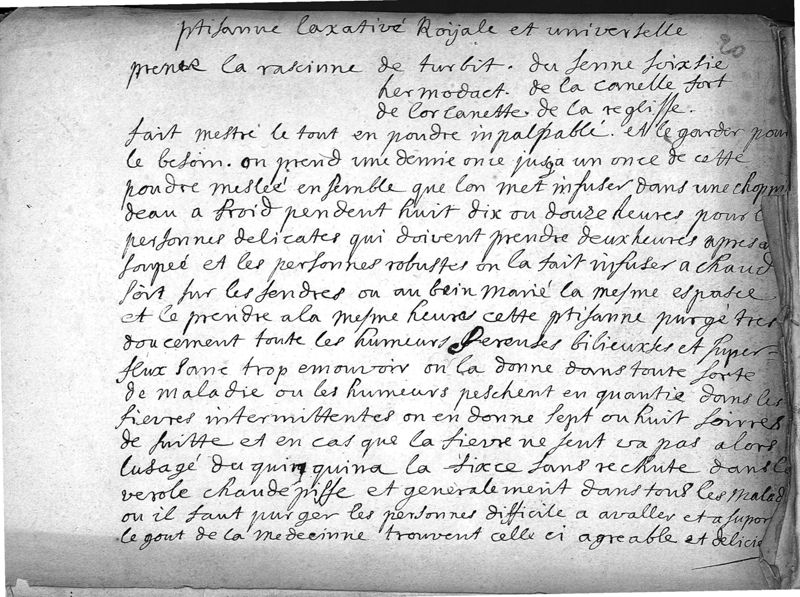 ptisanne laxativé Roijale et universelle
20
prenez la rascinne de turbit. du senne soixsie
hermodact. de la canelle fort
de lorcanette de la reglisse.
fait mestre le tout en poudre inpalpablé. et le garder pour
le besoin. on prend une demie once jusqa un once de cette
poudre mesleé ensemble que lon met infuser dans une chopin
deau a froid pendent huit dix ou douze heures pour l
personnes delicates qui doivent prendre deux heures apres a
soupeé et les personnes robustes on la fait infuser a chaud
soit sur les sendres ou au bein marié la mesme espasce
et le prendre a la mesme heures cette ptisanne purgé tres
doucement toute les humeurs sereuses bilieuxses et super-
flux sanc trop emouvoir on la donne dans toute sorte
de maladie ou les humeurs peschent en quantie dans les
fievres intermittentes on en donne sept ou huit soirres
de suitte et en cas que la fievre ne sent va pas alors
lusagé du quinquina la fixce sans rechute dans le
verole chaudepisse et generalement dans tous les malad
ou il faut purger les personnes difficile a avaller et a supor
le gout de la medecinne trouvent celle ci agreable et delicie